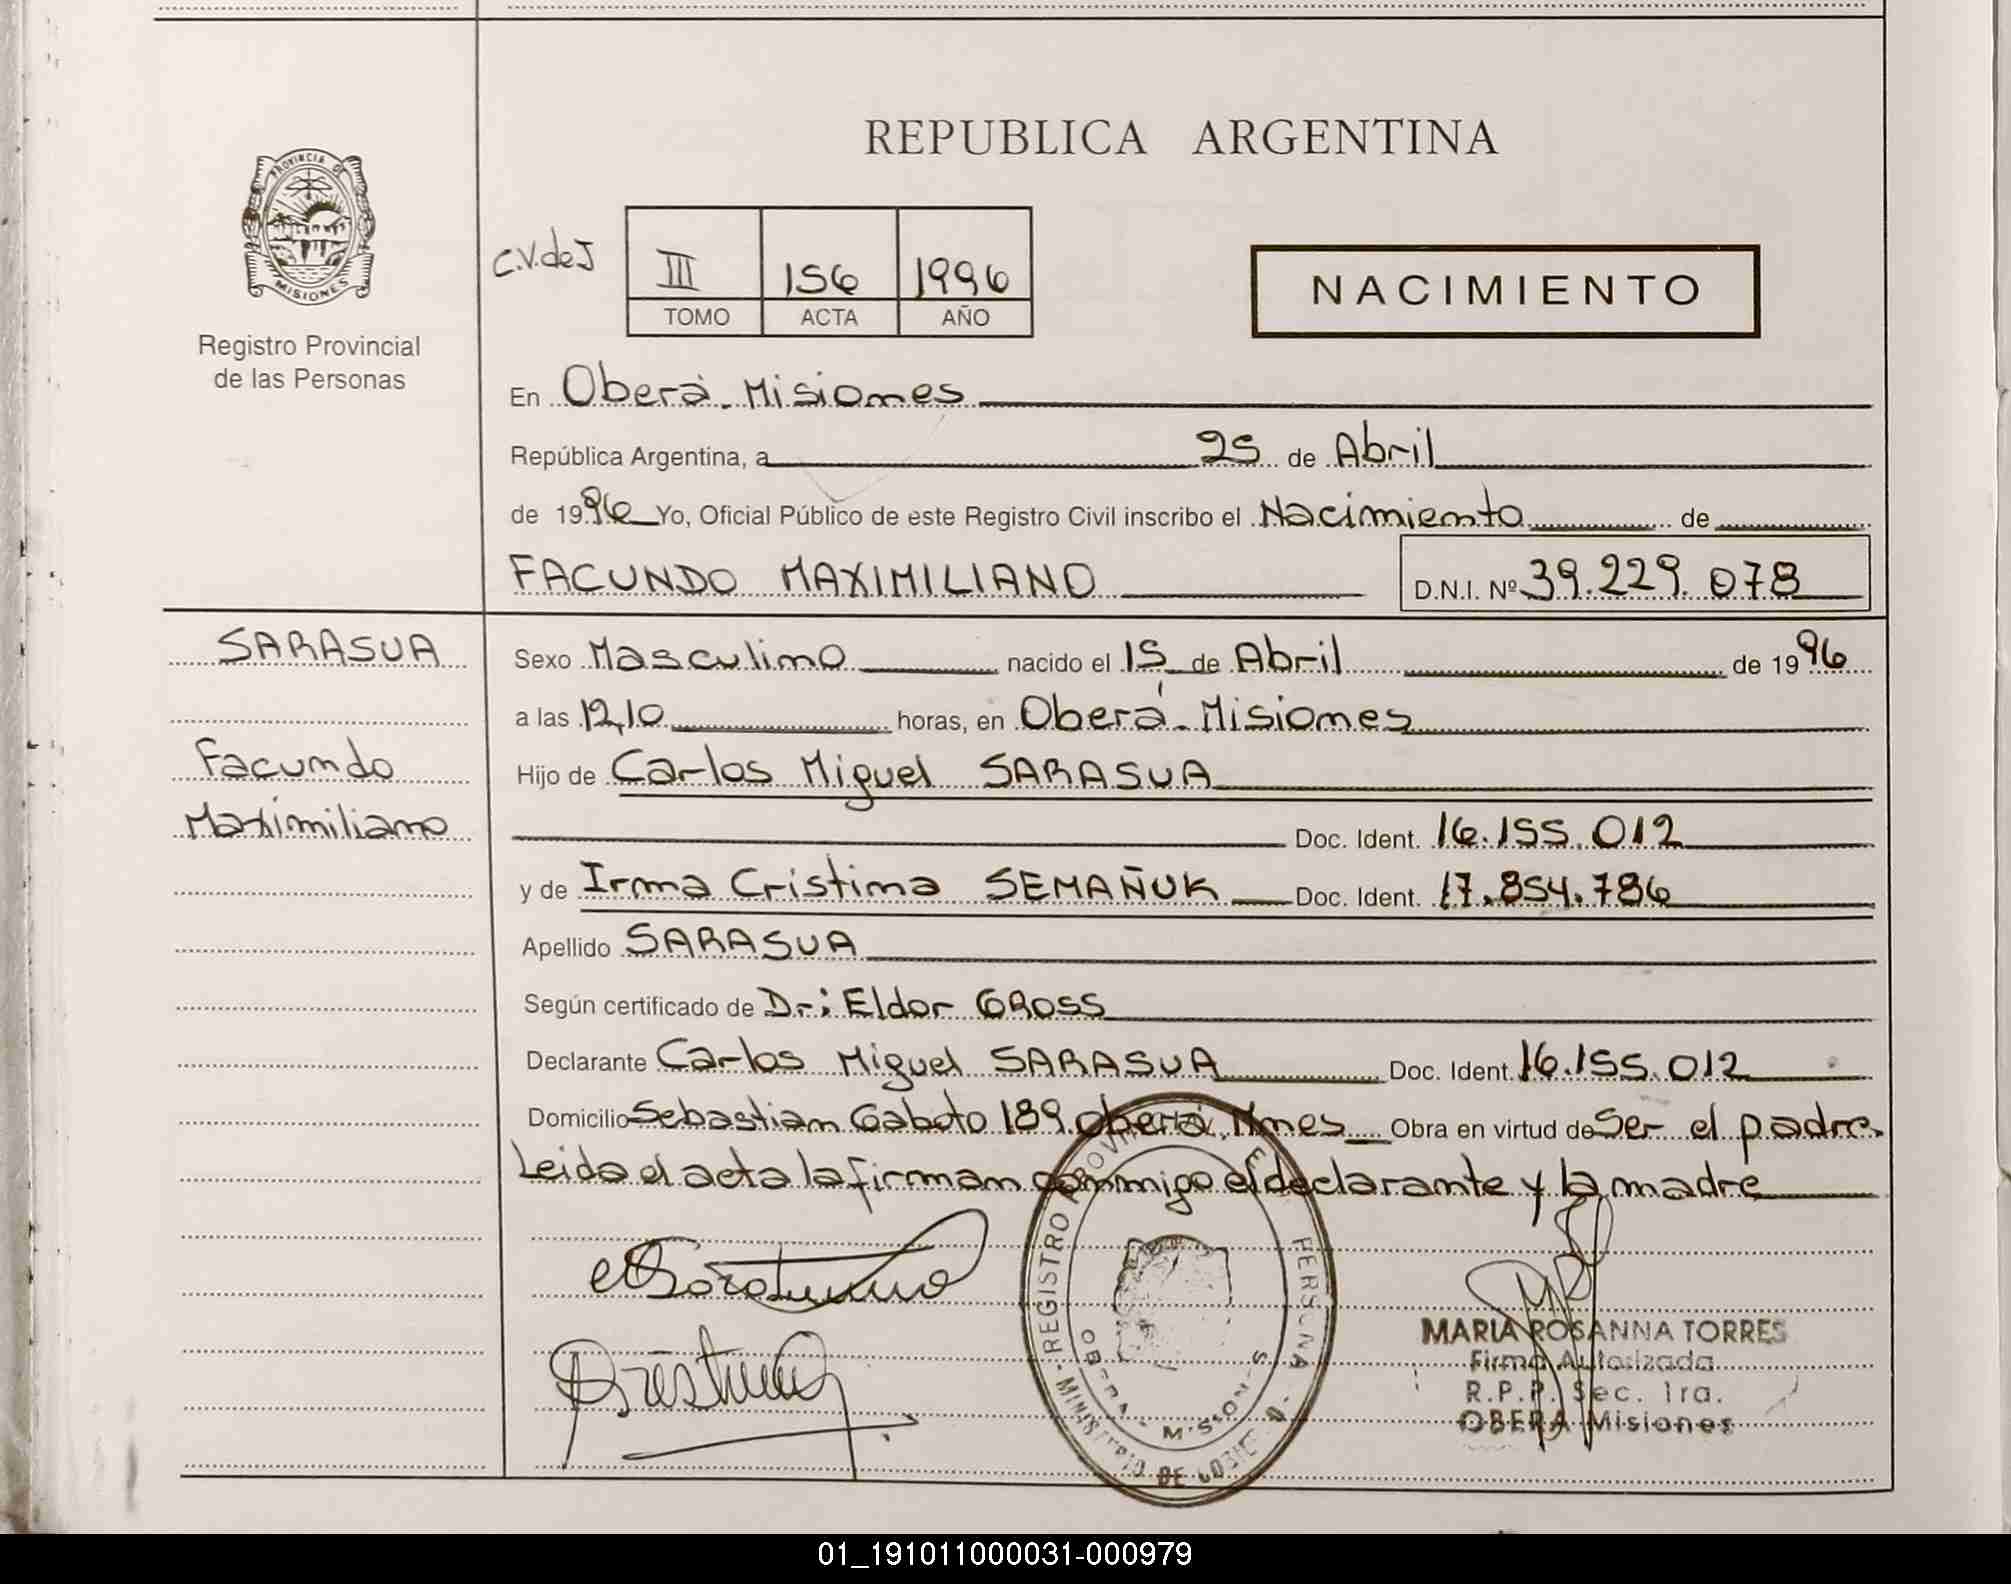 REPUBLICA ARGENTINA
PROVINCIA DE
MISIONES
Registro Provincial
de las Personas
C.V.deJ
III 156 1996
TOMO ACTA AÑO
NACIMIENTO
En Oberá - Misiones
República Argentina, a 25 de Abril
de 1996 Yo, Oficial Público de este Registro Civil inscribo el Nacimiento de
FACUNDO MAXIMILIANO D.N.I. Nº 39.229.078
SARASUA
Facundo
Maximiliano
Sexo Masculino nacido el 15 de Abril de 1996
a las 12,10 horas, en Oberá - Misiones
Hijo de Carlos Miguel SARASUA
Doc. Ident. 16.155.012
y de Irma Cristina SEMAÑUK Doc. Ident. 17.854.786
Apellido SARASUA
Según certificado de Dr: Eldor GROSS
Declarante Carlos Miguel SARASUA Doc. Ident. 16.155.012
Domicilio Sebastian Gaboto 189. Oberá, Mnes Obra en virtud de Ser el padre.
Leida el acta la firman conmigo el declarante y la madre
REGISTRO
OBERA - MISIONES
MINISTERIO DE GOBIERNO
MARIA ROSANNA TORRES
Firma Autorizada
R.P.P. Sec. 1ra.
OBERA Misiones
01_191011000031-000979